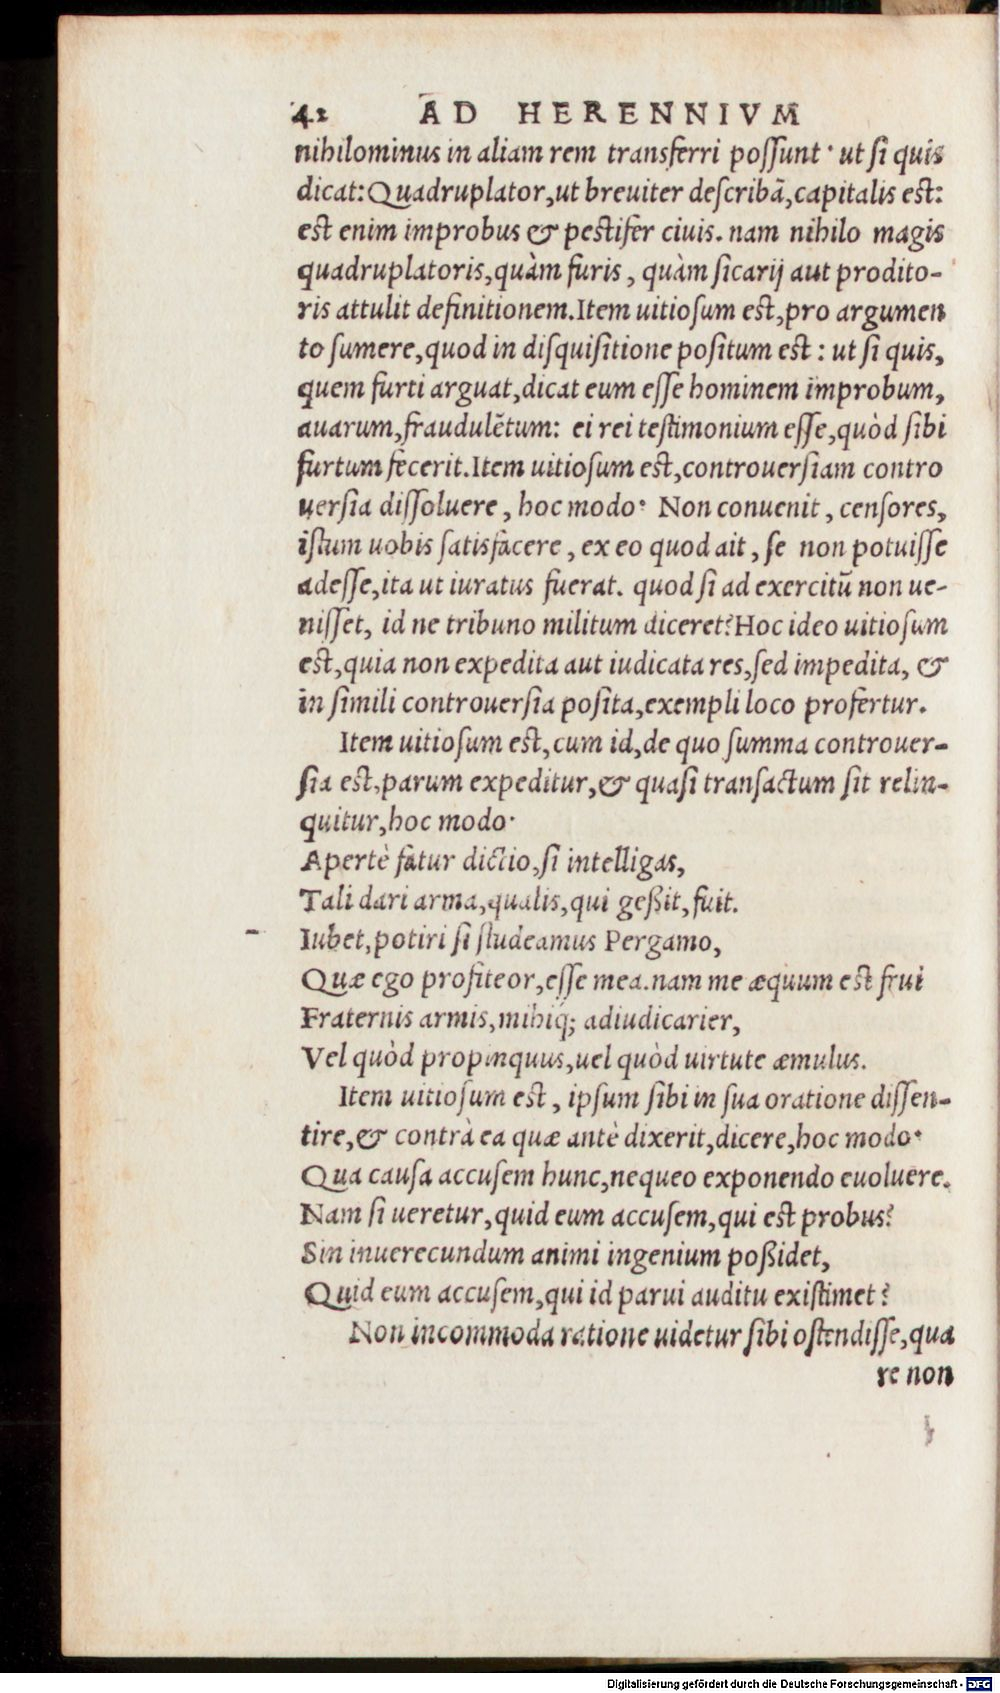 42 AD HERENNIVM
nihilominus in aliam rem transferri possunt· ut si quis
dicat: Quadruplator, ut breuiter describā, capitalis est:
est enim improbus & pestifer ciuis. nam nihilo magis
quadruplatoris, quàm furis, quàm sicarij aut prodito-
ris attulit definitionem. Item uitiosum est, pro argumen
to sumere, quod in disquisitione positum est: ut si quis,
quem furti arguat, dicat eum esse hominem improbum,
auarum, fraudulētum: ei rei testimonium esse, quòd sibi
furtum fecerit. Item uitiosum est, controuersiam contro
uersia dissoluere, hoc modo· Non conuenit, censores,
istum uobis satisfacere, ex eo quod ait, se non potuisse
adesse, ita ut iuratus fuerat. quod si ad exercitū non ue-
nisset, id ne tribuno militum diceret? Hoc ideo uitiosum
est, quia non expedita aut iudicata res, sed impedita, &
in simili controuersia posita, exempli loco profertur.
Item uitiosum est, cum id, de quo summa controuer-
sia est, parum expeditur, & quasi transactum sit relin-
quitur, hoc modo·
Apertè fatur dictio, si intelligas,
Tali dari arma, qualis, qui geßit, fuit.
Iubet, potiri si studeamus Pergamo,
Quæ ego profiteor, esse mea. nam me æquum est frui
Fraternis armis, mihiq́; adiudicarier,
Vel quòd propinquus, uel quòd uirtute æmulus.
Item uitiosum est, ipsum sibi in sua oratione dissen-
tire, & contrà ea quæ antè dixerit, dicere, hoc modo·
Qua causa accusem hunc, nequeo exponendo euoluere.
Nam si ueretur, quid eum accusem, qui est probus?
Sin inuerecundum animi ingenium poßidet,
Quid eum accusem, qui id parui auditu existimet?
Non incommoda ratione uidetur sibi ostendisse, qua
re non
Digitalisierung gefördert durch die Deutsche Forschungsgemeinschaft - DFG